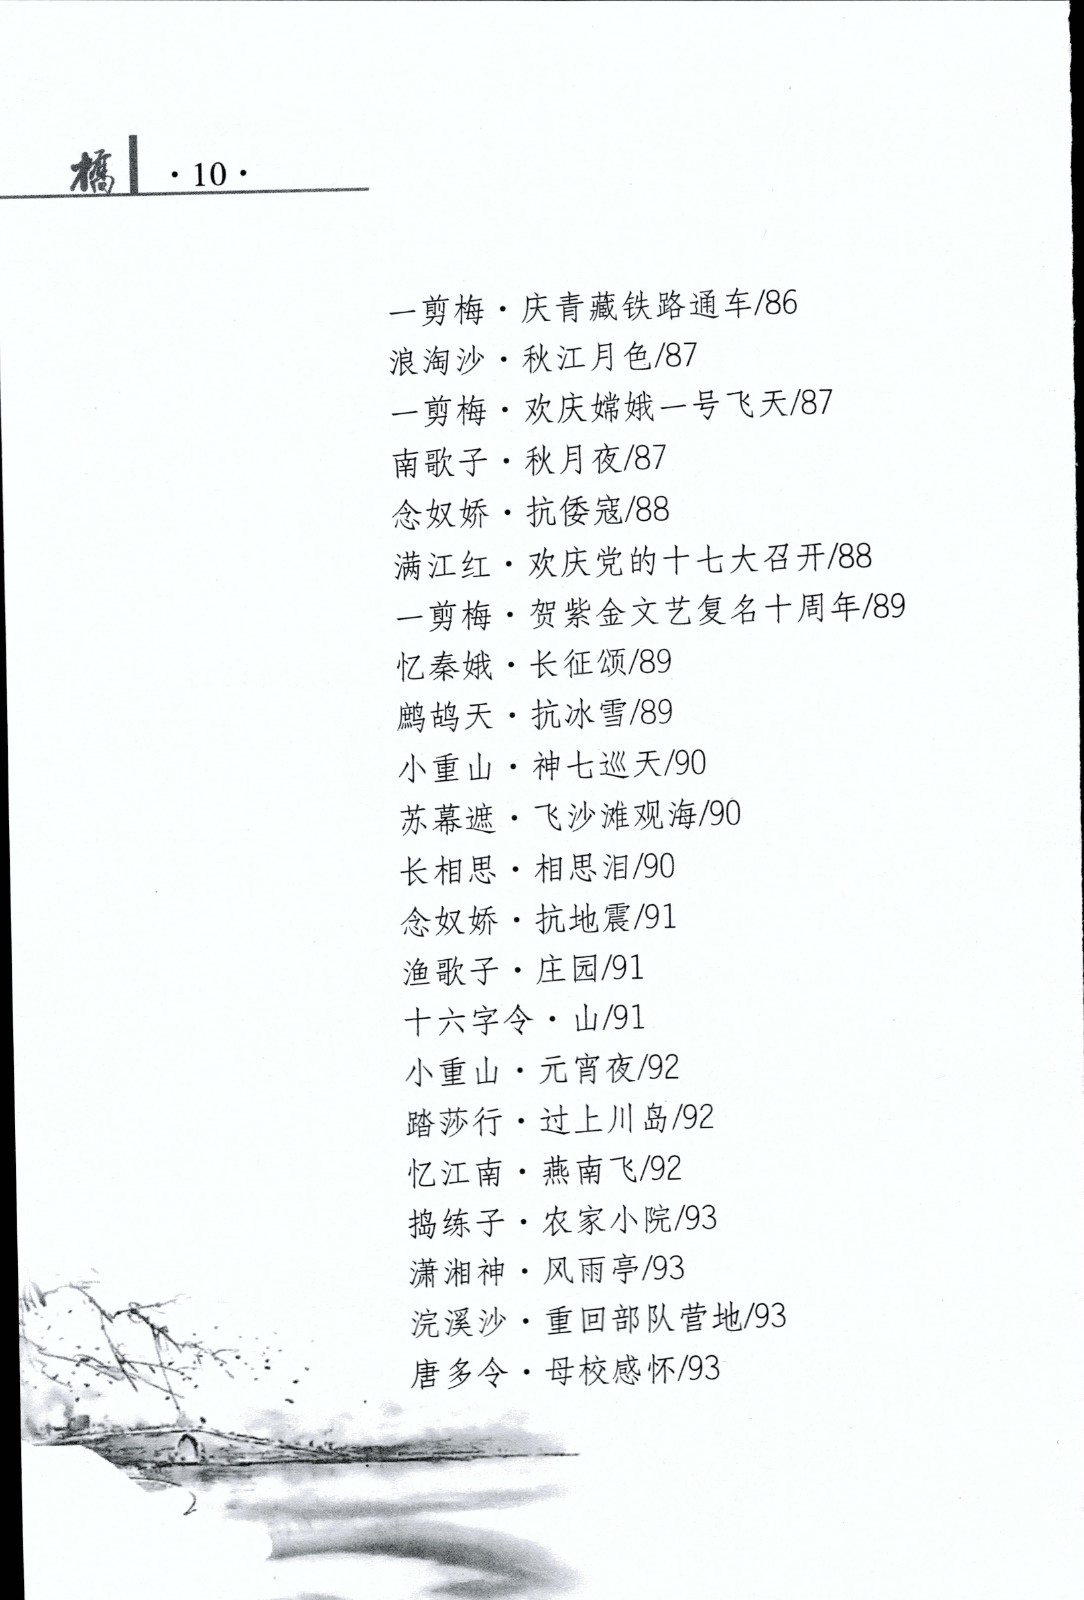 橋 ·10·
一剪梅·庆青藏铁路通车/86
浪淘沙·秋江月色/87
一剪梅·欢庆嫦娥一号飞天/87
南歌子·秋月夜/87
念奴娇·抗倭寇/88
满江红·欢庆党的十七大召开/88
一剪梅·贺紫金文艺复名十周年/89
忆秦娥·长征颂/89
鹧鸪天·抗冰雪/89
小重山·神七巡天/90
苏幕遮·飞沙滩观海/90
长相思·相思泪/90
念奴娇·抗地震/91
渔歌子·庄园/91
十六字令·山/91
小重山·元宵夜/92
踏莎行·过上川岛/92
忆江南·燕南飞/92
捣练子·农家小院/93
潇湘神·风雨亭/93
浣溪沙·重回部队营地/93
唐多令·母校感怀/93
2